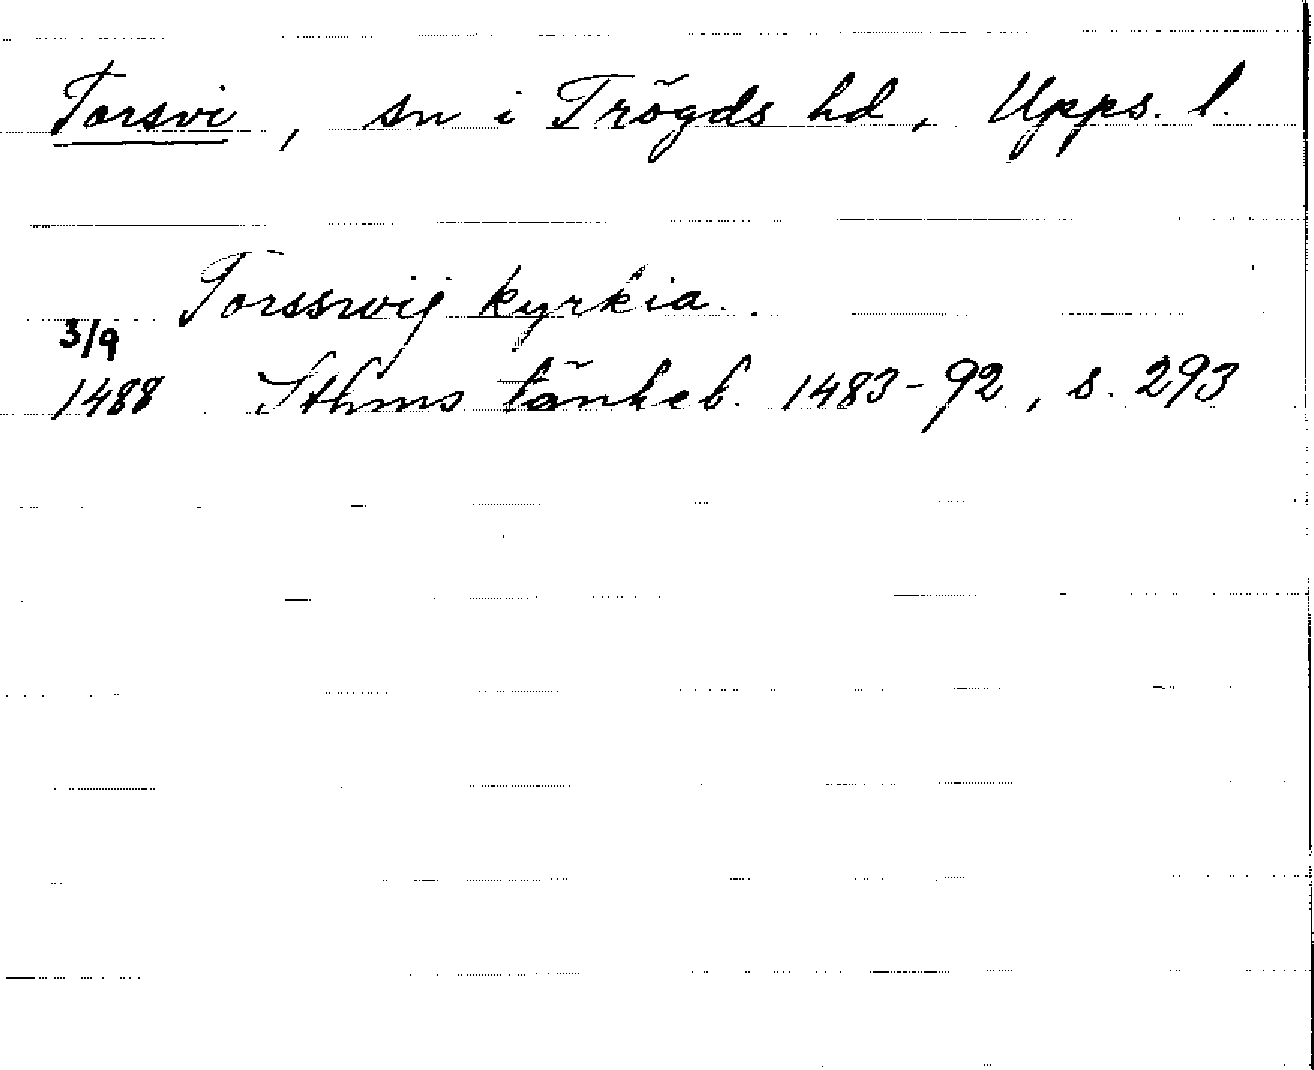 Torsvi, sn i Trögds hd, Upps. l.
Torsswij kyrkia.
3/9
1488 Sthms tänkeb. 1483-92, s. 293